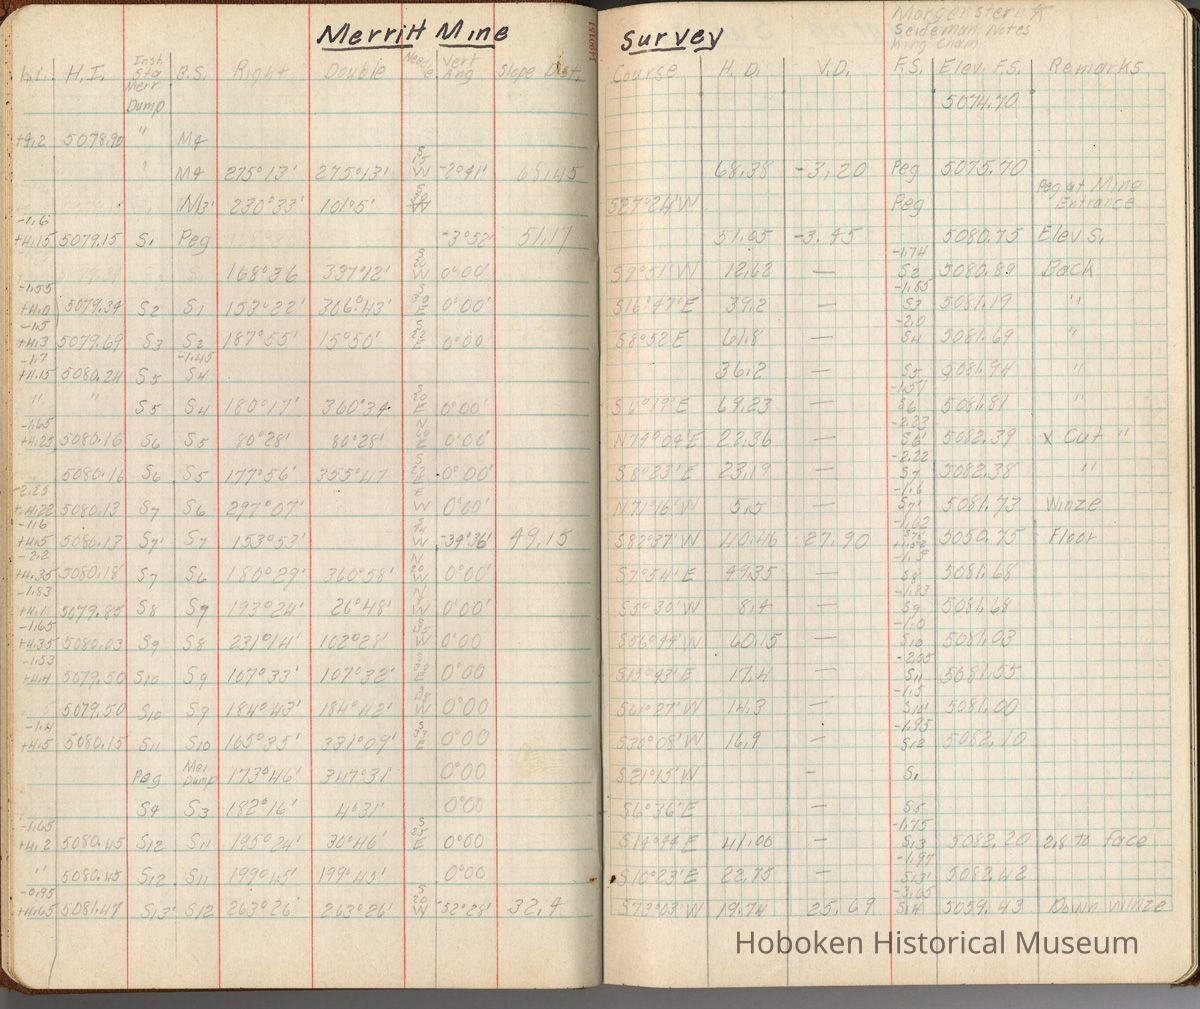 Merritt Mine Survey
Morgenstern
Seideman Notes
King Chain
H.I. Inst Sta B.S. Right Double Needle Vert Ang Slope Dist Course H.D. V.D. F.S. Elev. F.S. Remarks
Merr Dump 5074.70
+4.2 5078.90 " M4
" M4 275°13' 275°13' -2°41' 68.45 68.38 -3.20 Peg 5075.70
230°33' 101°5' S27°24'W Peg Peg at Mine Entrance
-1.6
+4.15 5079.15 S1 Peg -3°52' 51.17 51.05 -3.45 5080.75 Elev S1
168°36 337°12' S 20 W 0°00' S9°51'W 12.62 — -1.74 S2 5080.89 Back
-1.55
+4.0 5079.34 S2 S1 153°22' 306°43' S 30 E 0°00' S16°47'E 39.2 — -1.85 S3 5081.19 "
-1.5
+4.3 5079.69 S3 S2 187°55' 15°50' S 22 E 0°00' S8°52'E 61.8 — -2.0 S4 5081.69 "
-1.7 -1.45
+4.15 5080.24 S5 S4 36.2 — S5 5081.94 "
" " S5 S4 180°17' 360°34 S 20 E 0°00' 69.23 — -1.57 S6 5081.81 "
-1.65
+4.25 5080.16 S6 S5 80°28' 80°28' N 60 E 0°00' N74°04'E 22.36 — -2.23 S6' 5082.39 x Cut "
5080.16 S6 S5 177°56' 355°47 S 22 E 0°00' S8°23'E 23.19 — -2.22 S7 5082.38 "
-2.25
+4.22 5080.13 S7 S6 297°07' E W 0°00' N71°16'W 5.5 — -1.6 S7' 5081.73 Winze
-1.6
+4.5 5080.13 S7' S7 153°53' W -34°36' 49.15 S82°37'W 40.46 -27.90 -1.62 5050.75 Floor
-2.2
+4.35 5080.18 S7 S6 180°29' 360°58' N 20 W 0°00' S7°54'E 49.35 — -1.5 S8 5081.68
-1.83
+4.1 5079.85 S8 S7 193°24' 26°48' W 0°00' S5°30'W 8.4 — -1.83 S9 5081.68
-1.65
+4.35 5080.03 S9 S8 231°14' 102°28' W 0°00 S56°44'W 60.15 — -1.0 S10 5081.03
-1.53
+4.4 5079.50 S10 S9 107°33' 107°32' E 0°00 17.4 — -2.05 S11 5081.55
5079.50 S10 S9 184°43' 184°42' W 0°00 S61°27'W 14.3 — -1.5 S10' 5081.00
-1.4
+4.5 5080.15 S11 S10 165°35' 331°09' S 33 E 0°00 S30°08'W 16.9 — -1.95 S12 5082.10
Peg Mer Dump 173°46' 347°31' 0°00 S21°15'W - S1
S4 S3 182°16' 4°31' 0°00 S6°36'E — S5
-1.65
+4.2 5080.45 S12 S11 195°24' 30°46' S 25 E 0°00 S14°44'E 41.06 — -1.75 S13 5082.20 2.8 to face
" 5080.45 S12 S11 199°45' 199°45' 0°00 S10°23'E 22.75 — -1.97 S13' 5082.42
-0.95
+4.65 5081.47 S13' S12 263°26' 263°26' S 20 W -52°28' 32.4 S73°03'W 19.74 25.69 -3.65 S14 5059.43 Down winze
Hoboken Historical Museum